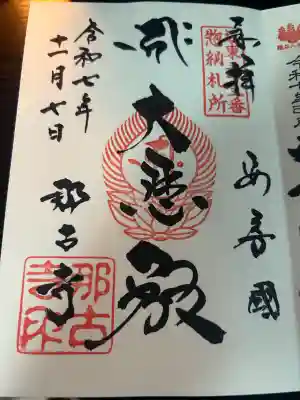 奉拝
安房國
大悲殿
令和七年
十一月七日
那古寺
惣納札所
那古
寺印